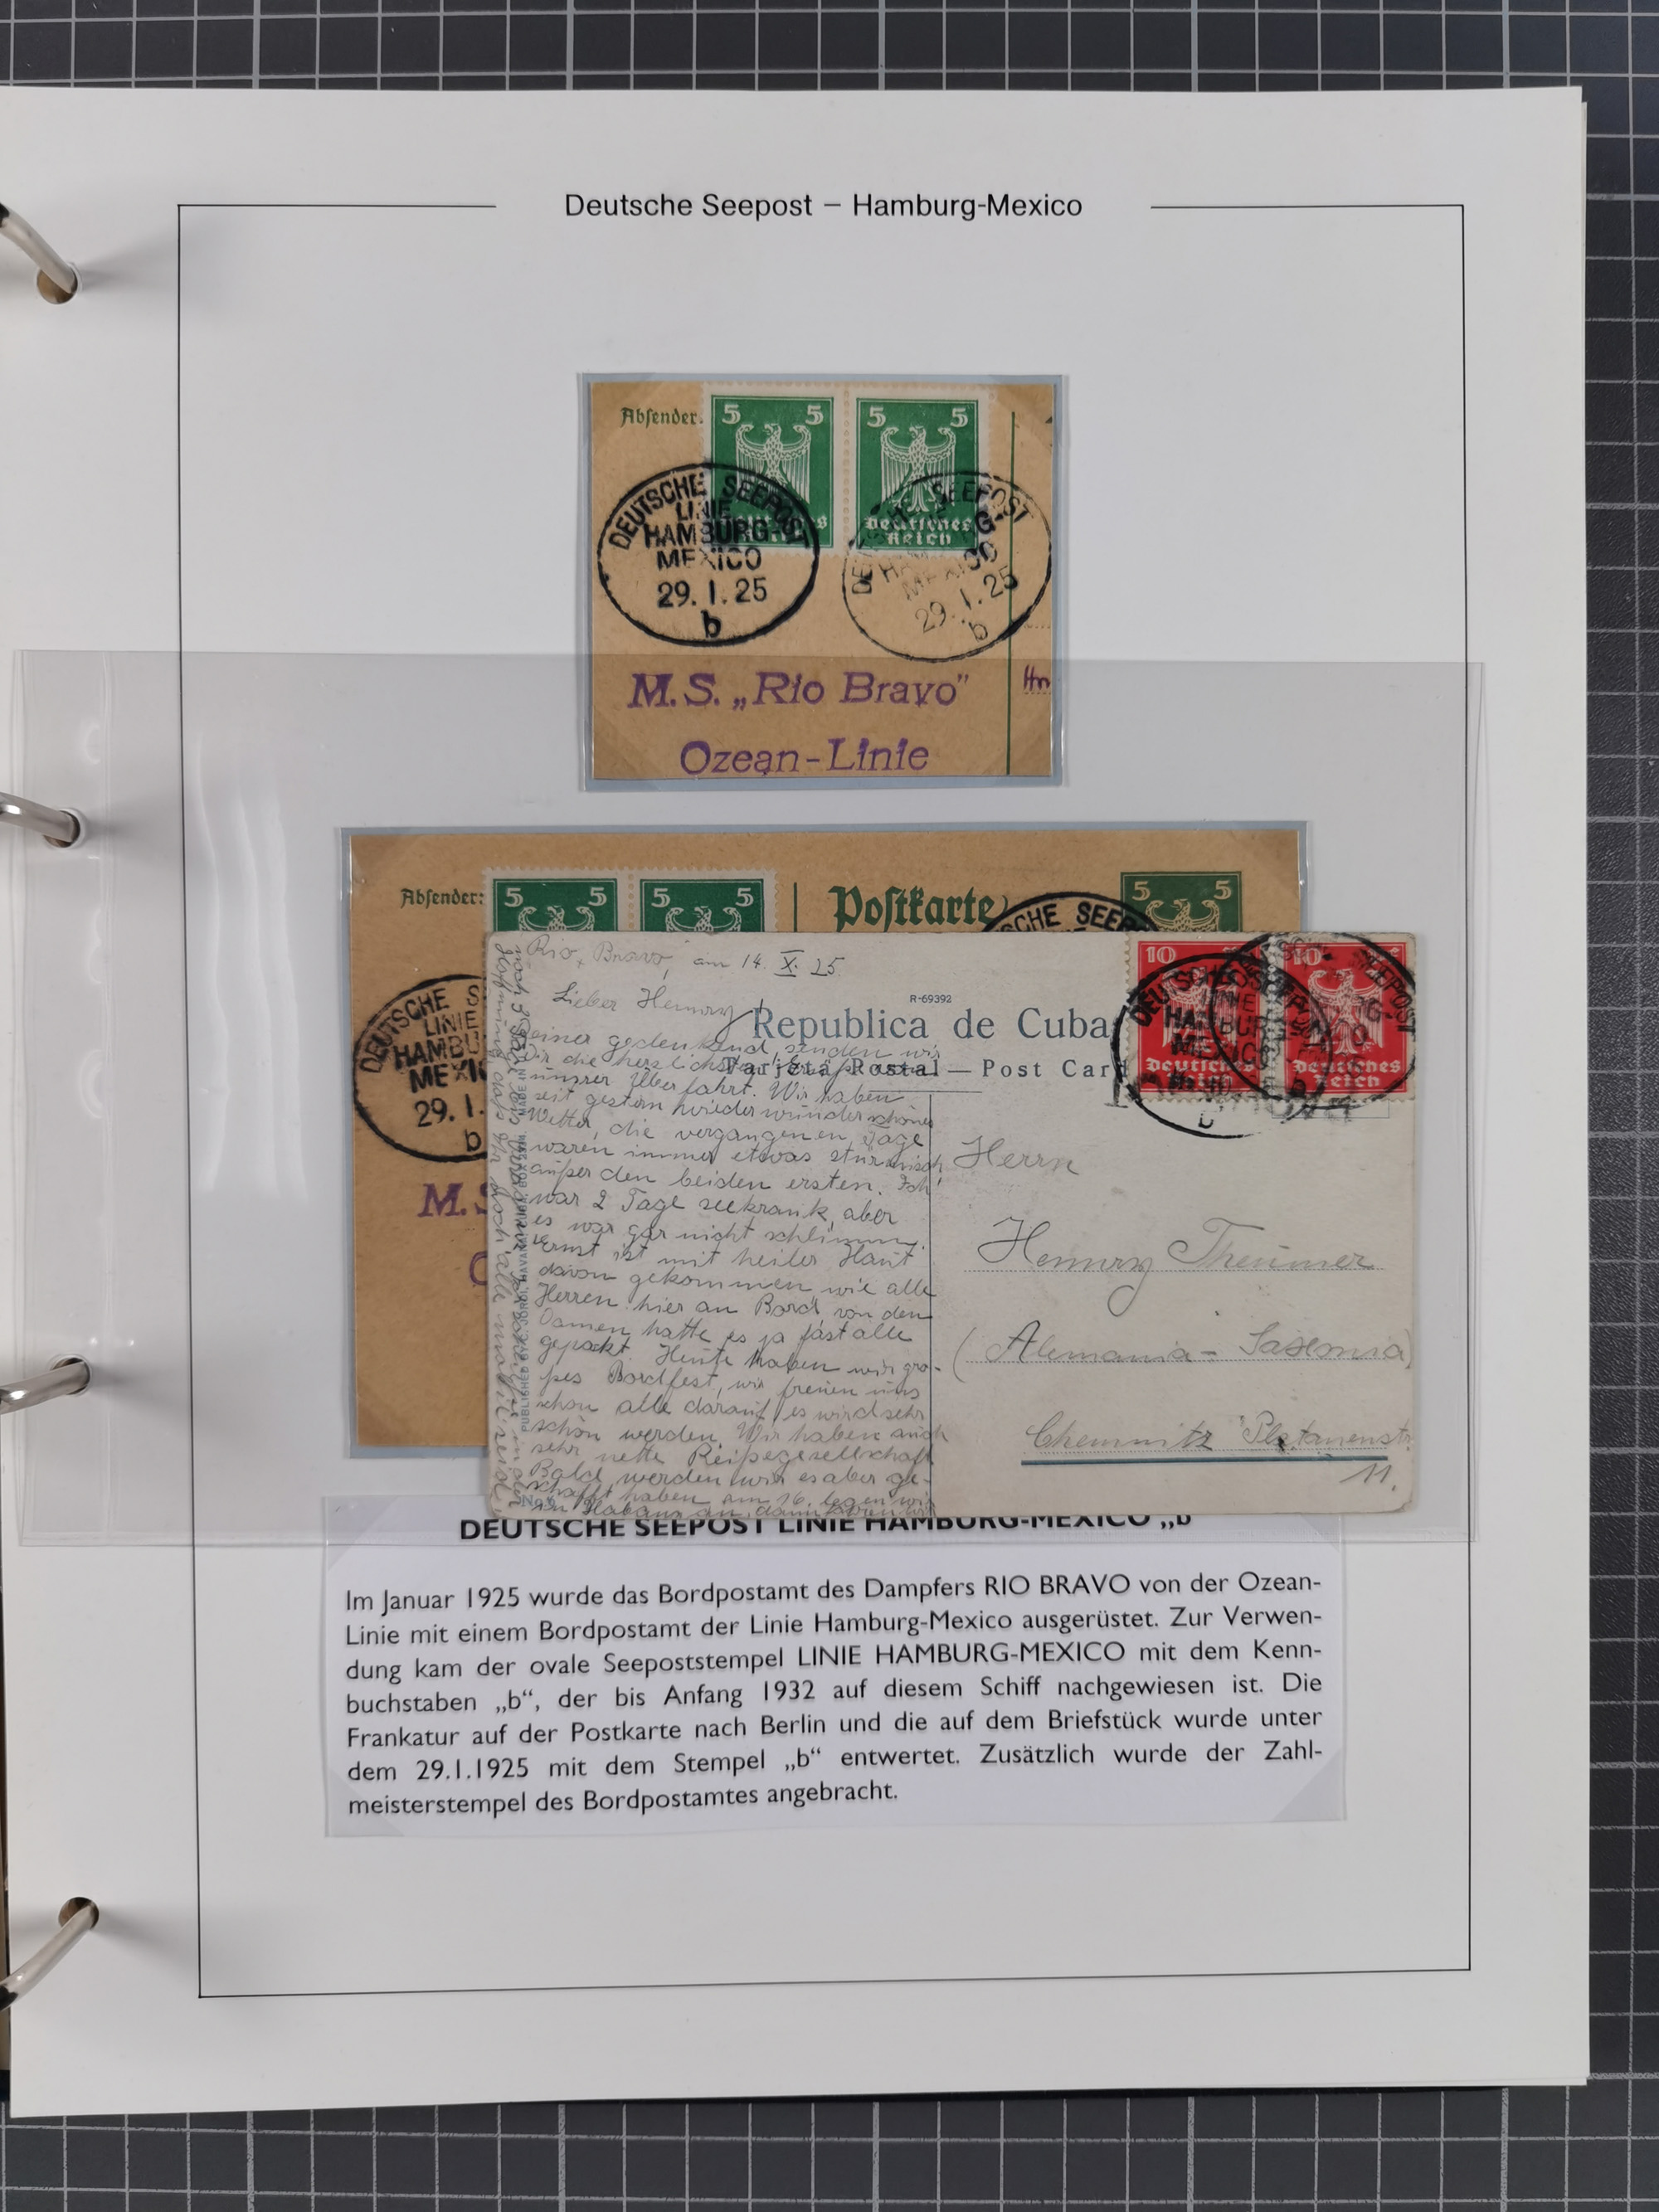 Deutsche Seepost – Hamburg-Mexico
Absender:
5 5
5 5
Deutsches
Reich
DEUTSCHE SEEPOST
LINIE
HAMBURG-
MEXICO
29.1.25
b
SEEPOST
G-
MEXICO
29.1.25
b
M.S. „Rio Bravo"
Ozean-Linie
Absender:
5 5
5 5
Postkarte
5 5
DEUTSCHE S
LINIE
HAMBU
MEXI
29.1.
b
M.S
Rio Bravo, am 14. X. 25.
Lieber Henry
R-69392
Republica de Cuba
Tarjeta Postal — Post Card
10
10
DEUTSCHE
LINIE
HAMBURG
MEXICO
Deutsches
Reich
SEEPOST
Deutsches
Reich
b
einer gedenkend, senden wir
Dir die herzlichsten
unsrer Überfahrt. Wir haben
seit gestern wieder wunderschönes
Wetter, die vergangenen Tage
waren immer etwas stürmisch
außer den beiden ersten. Ich
war 2 Tage seekrank, aber
es war gar nicht schlimm.
Ernst ist mit heiler Haut
davon gekommen wie alle
Herren hier an Bord von den
Damen hatte es ja fast alle
gepackt. Heute haben wir gro-
ßes Bordfest, wir freuen uns
schon alle darauf, es wird sehr
schön werden. Wir haben auch
sehr nette Reisegesellschaft
Bald werden wir es aber ge-
schafft haben am 16. legen wir
in Habana an, dann
Herrn
Henry Theumer
(Alemania - Sasconia)
Chemnitz Platanenstr.
11.
DEUTSCHE SEEPOST LINIE HAMBURG-MEXICO „b
Im Januar 1925 wurde das Bordpostamt des Dampfers RIO BRAVO von der Ozean-
Linie mit einem Bordpostamt der Linie Hamburg-Mexico ausgerüstet. Zur Verwen-
dung kam der ovale Seepoststempel LINIE HAMBURG-MEXICO mit dem Kenn-
buchstaben „b“, der bis Anfang 1932 auf diesem Schiff nachgewiesen ist. Die
Frankatur auf der Postkarte nach Berlin und die auf dem Briefstück wurde unter
dem 29.1.1925 mit dem Stempel „b“ entwertet. Zusätzlich wurde der Zahl-
meisterstempel des Bordpostamtes angebracht.